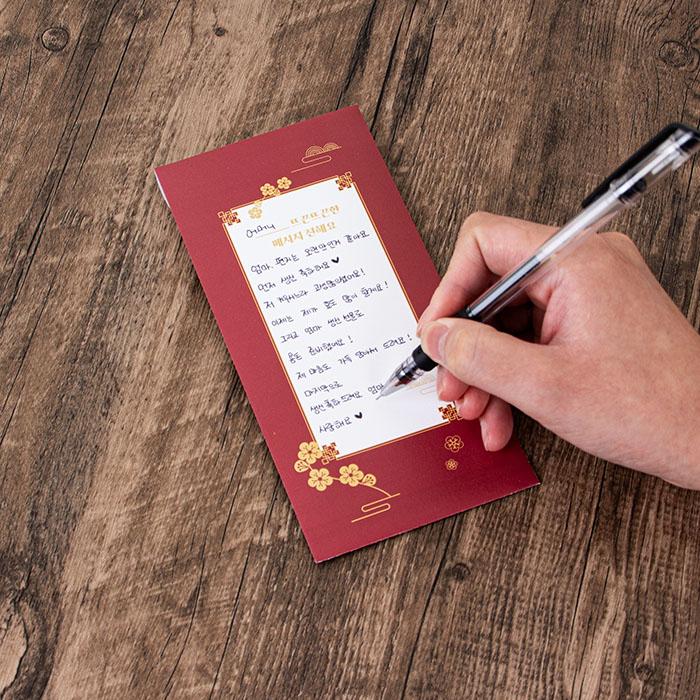 어머니 뜨끈뜨끈한
메시지 전해요
엄마, 편지는 오랜만인거 같아요
먼저 생신 축하해요 ♥
저 키우느라 고생많으셨어요!
이제는 제가 효도 많이 할게요!
그리고 엄마 생신 선물로
용돈 준비했어요!
제 마음도 가득 담아서 드려요!
마지막으로
생신축하드려요 엄마
사랑해요 ♥